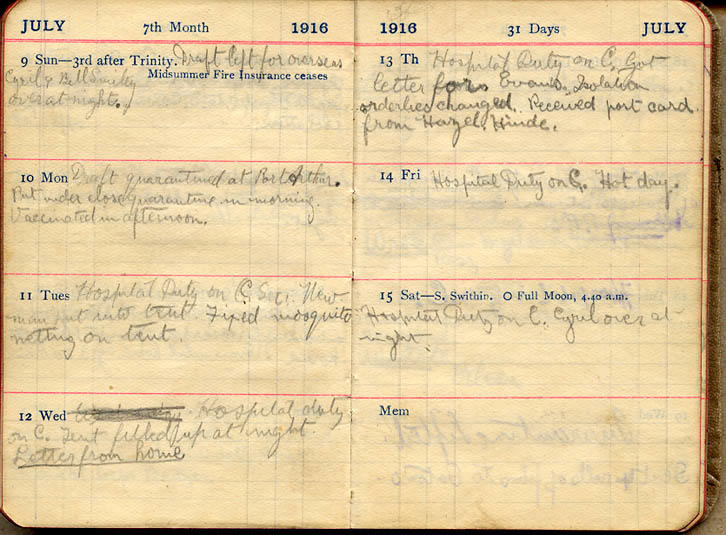 JULY 7th Month 1916
9 Sun—3rd after Trinity. Draft left for overseas
Midsummer Fire Insurance ceases
Cyril & Bill
over at night.
10 Mon Draft quarantined at Port Arthur.
Put under close quarantine in morning.
Vaccinated in afternoon.
11 Tues Hospital Duty on C. Sec. New
man put into tent. Fixed mosquito
netting on tent.
12 Wed Hospital duty
on C. Tent filled up at night.
Letter from home
1916 31 Days JULY
13 Th Hospital Duty on C. Got
letter from Evans. Isolation
orderlies changed. Received post card
from Hazel Hinde.
14 Fri Hospital Duty on C. Hot day.
15 Sat—S. Swithin. O Full Moon, 4.40 a.m.
Hospital Duty on C. Cyril over at
night.
Mem